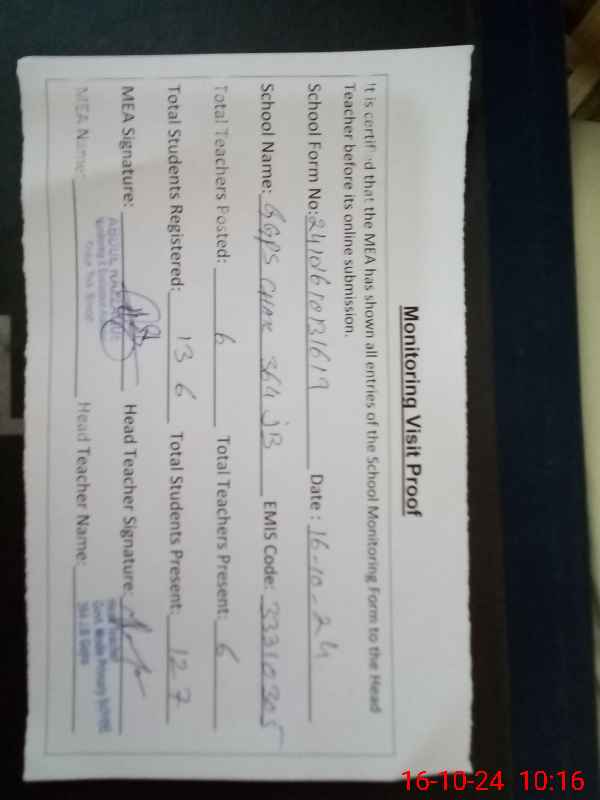 Monitoring Visit Proof
It is certified that the MEA has shown all entries of the School Monitoring Form to the Head
Teacher before its online submission.
School Form No: Date: 16-10-24
School Name: GGPS CHAK 364 JB EMIS Code: 33310305
Total Teachers Posted: 6 Total Teachers Present: 6
Total Students Registered: 136 Total Students Present: 127
MEA Signature: Head Teacher Signature:
MEA Name: Head Teacher Name:
Head Teacher
364 J.B
16-10-24 10:16